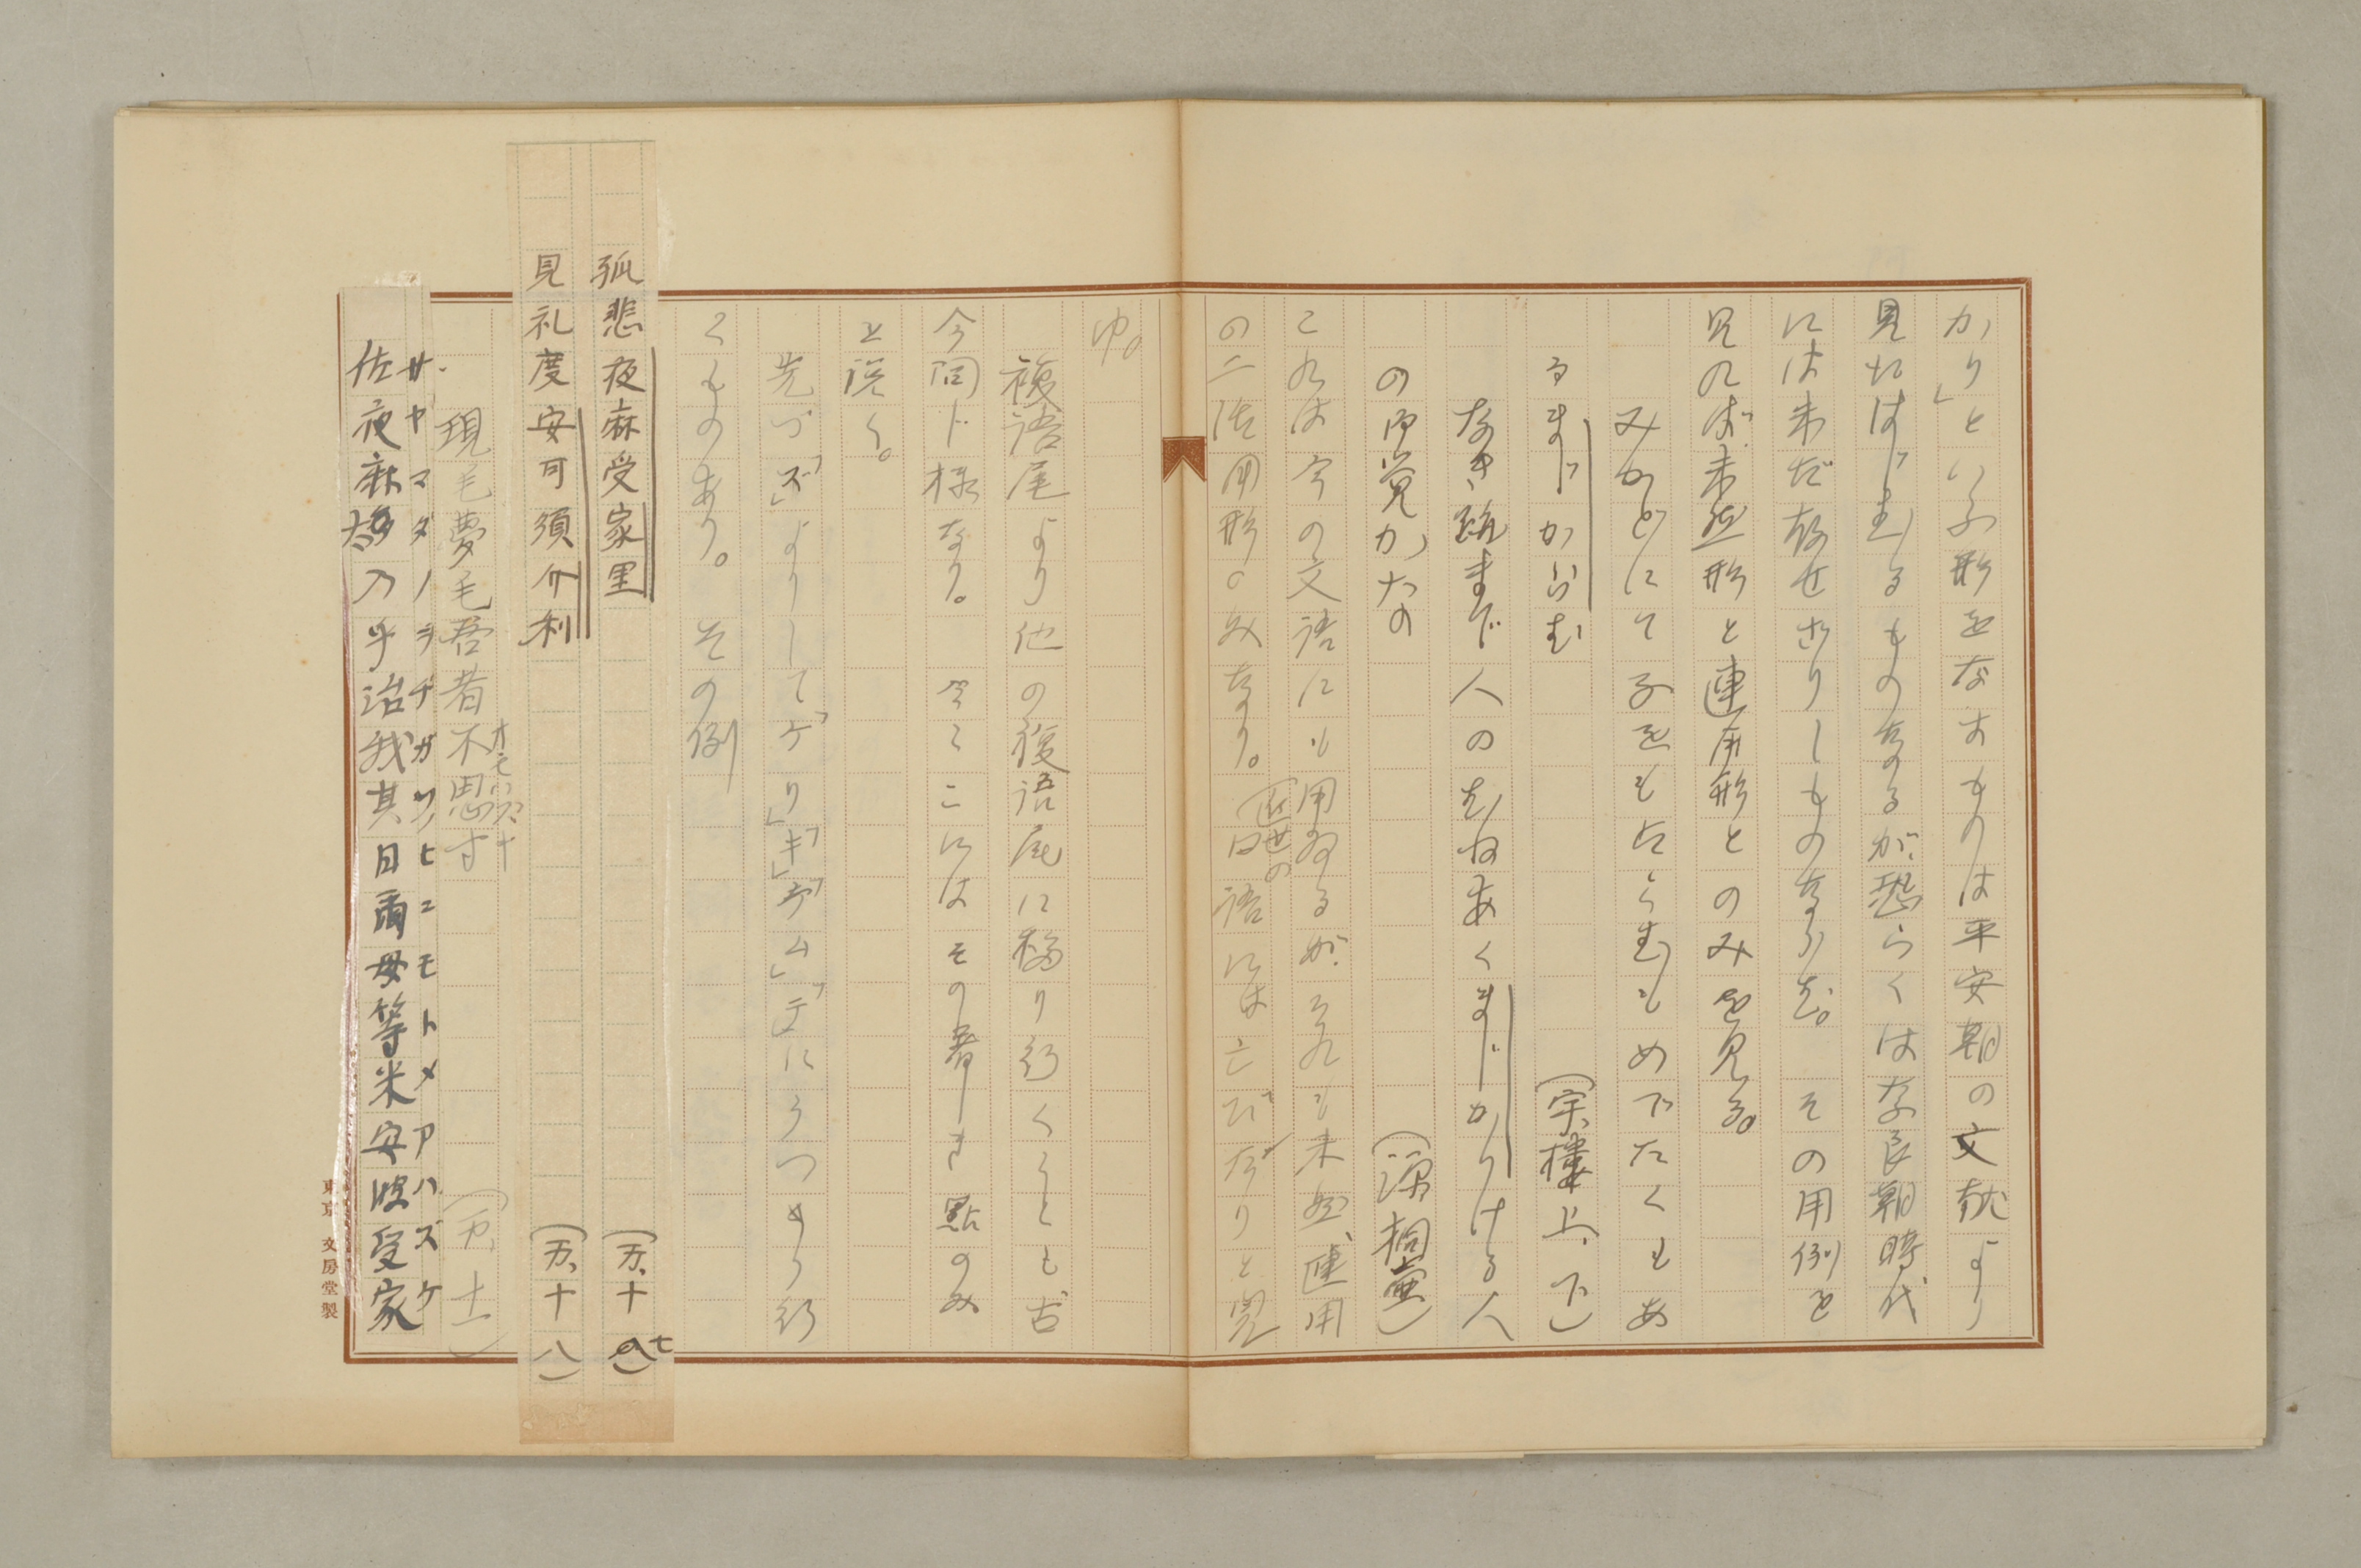 かり」といふ形をなすものは平安朝の文献より
見えはじむるものなるが、恐らくは奈良朝時代
には未だ存せざりしものならむ。その用例を
見れば、未然形と連用形とのみを見る。
みかどにて子をもたらむもめでたくもあ
るまじからむ
(宇、樓上、下)
なき跡まで人のむねあくまじかりける人
の御覚かたの
(源、桐壺)
これは今の文語にも用ゐるが、それも未然、連用
の二活用形のみなり。近世の口語には亡びたりと覚
ゆ。
複語尾より他の複語尾に移り行くことも古
今同じ様なり。今ここにはその著しき點のみ
を説く。
先づ「ズ」よりして「ケリ」「キ」「ラム」「テ」にうつりゆく
くものあり。その例
弧悲夜麻受家里
(万、十七)
見礼度安可須介利
(万、十八)
現毛夢毛吾者不思寸
オモハズキ
(万、十一)
サヤマダノヲヂガソノヒニモトメアハズケ
佐夜麻太乃乎治我其日爾母等米安波受家
東京 文房堂製